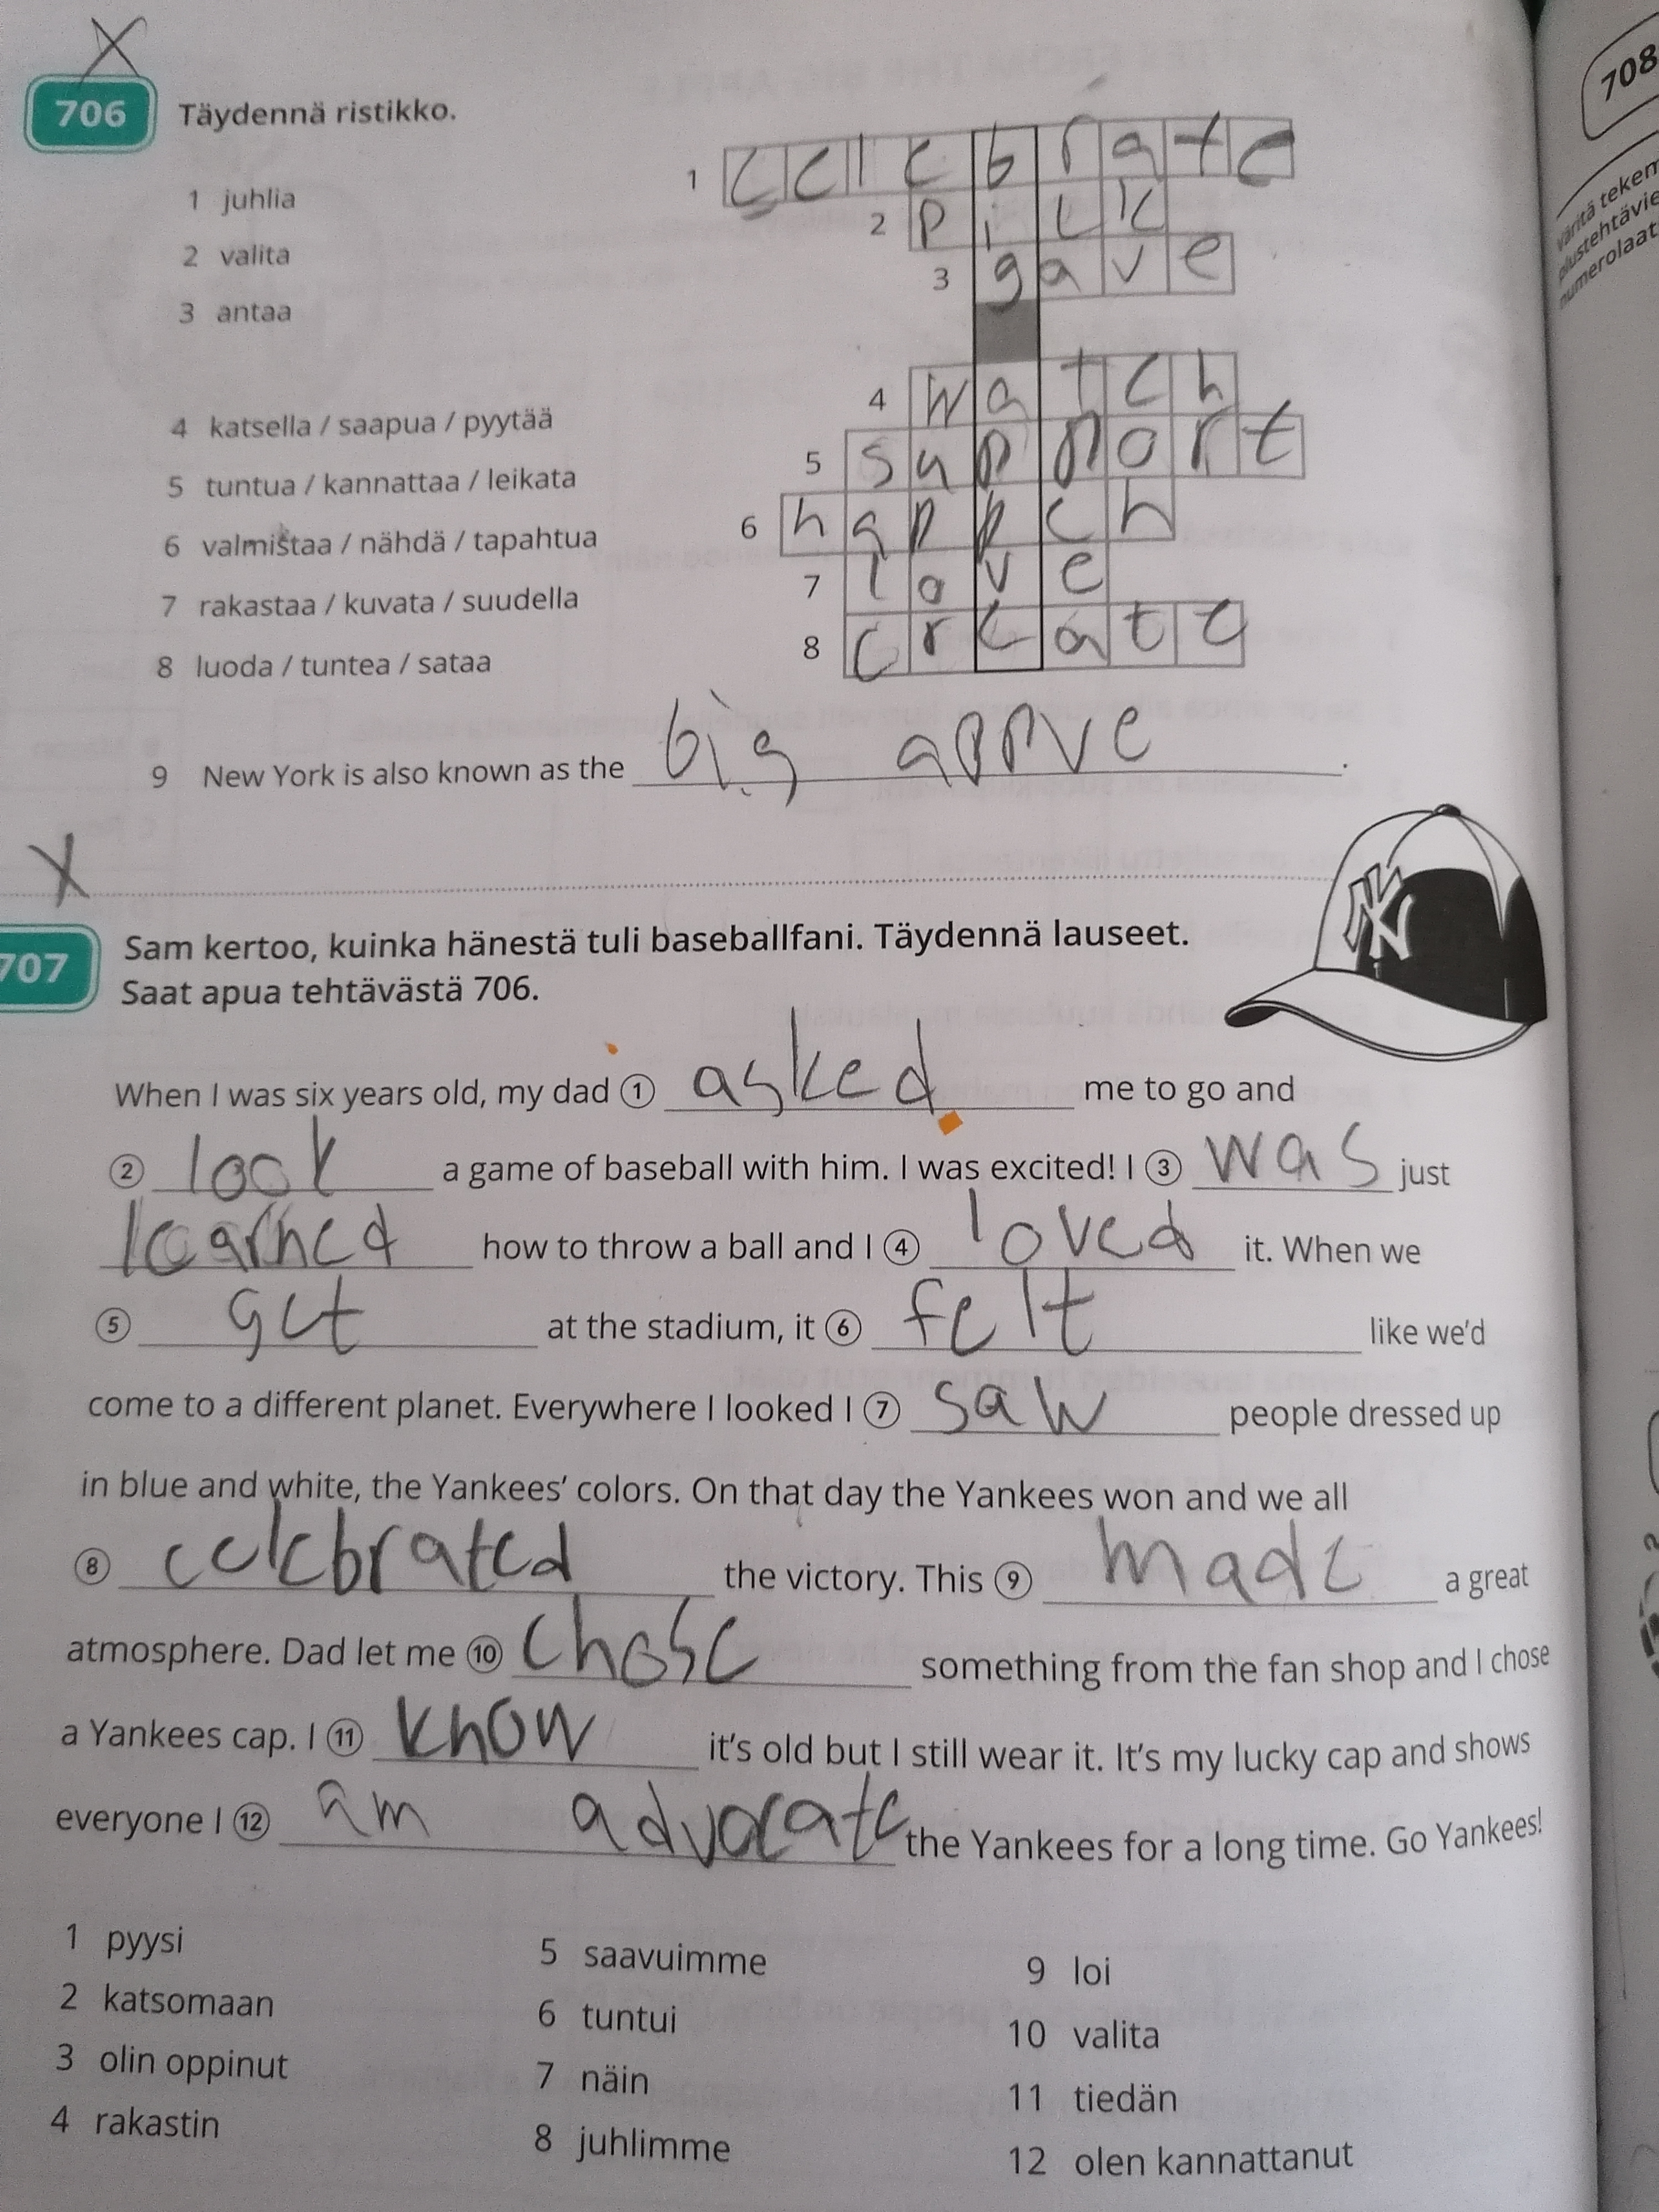 X
706 Täydennä ristikko.
1 juhlia
2 valita
3 antaa
4 katsella / saapua / pyytää
5 tuntua / kannattaa / leikata
6 valmistaa / nähdä / tapahtua
7 rakastaa / kuvata / suudella
8 luoda / tuntea / sataa
1 celebrate
2 pick
3 gave
4 watch
5 support
6 happen
7 love
8 create
9 New York is also known as the big appve.
X
NY
707 Sam kertoo, kuinka hänestä tuli baseballfani. Täydennä lauseet.
Saat apua tehtävästä 706.
When I was six years old, my dad 1 asked me to go and
2 look a game of baseball with him. I was excited! I 3 was just
learned how to throw a ball and I 4 loved it. When we
5 get at the stadium, it 6 felt like we'd
come to a different planet. Everywhere I looked I 7 saw people dressed up
in blue and white, the Yankees' colors. On that day the Yankees won and we all
8 celebrated the victory. This 9 made a great
atmosphere. Dad let me 10 chose something from the fan shop and I chose
a Yankees cap. I 11 know it's old but I still wear it. It's my lucky cap and shows
everyone I 12 am advocate the Yankees for a long time. Go Yankees!
1 pyysi
2 katsomaan
3 olin oppinut
4 rakastin
5 saavuimme
6 tuntui
7 näin
8 juhlimme
9 loi
10 valita
11 tiedän
12 olen kannattanut
708